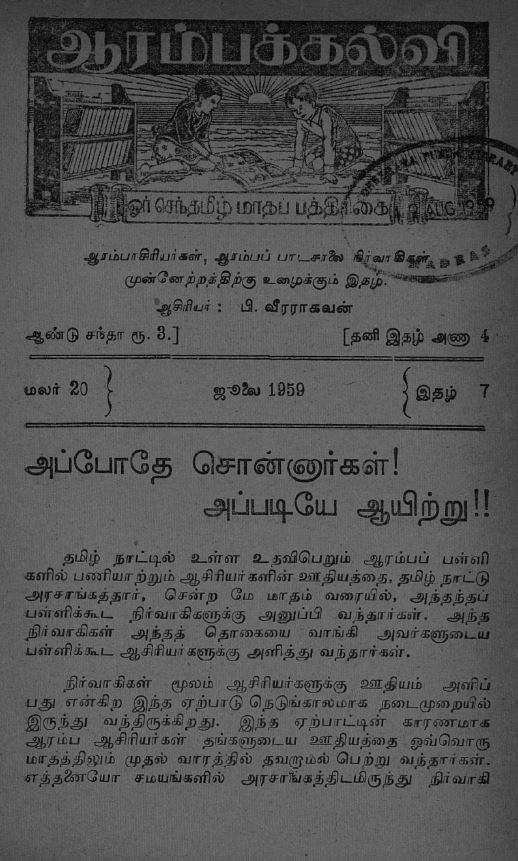 ஆரம்பக்கல்வி
ஓர் செந்தமிழ் மாதப் பத்திரிகை
PUBLIC LIBRARY
AUG 1959
MADRAS
ஆரம்பாசிரியர்கள், ஆரம்பப் பாடசாலை நிர்வாகிகள்
முன்னேற்றத்திற்கு உழைக்கும் இதழ்.
ஆசிரியர் : பி. வீரராகவன்
ஆண்டு சந்தா ரூ. 3.] [தனி இதழ் அணா 4
மலர் 20 } ஜூலை 1959 { இதழ் 7
அப்போதே சொன்னார்கள்!
அப்படியே ஆயிற்று!!
தமிழ் நாட்டில் உள்ள உதவிபெறும் ஆரம்பப் பள்ளி
களில் பணியாற்றும் ஆசிரியர்களின் ஊதியத்தை, தமிழ் நாட்டு
அரசாங்கத்தார், சென்ற மே மாதம் வரையில், அந்தந்தப்
பள்ளிக்கூட நிர்வாகிகளுக்கு அனுப்பி வந்தார்கள். அந்த
நிர்வாகிகள் அந்தத் தொகையை வாங்கி அவர்களுடைய
பள்ளிக்கூட ஆசிரியர்களுக்கு அளித்து வந்தார்கள்.
நிர்வாகிகள் மூலம் ஆசிரியர்களுக்கு ஊதியம் அளிப்
பது என்கிற இந்த ஏற்பாடு நெடுங்காலமாக நடைமுறையில்
இருந்து வந்திருக்கிறது. இந்த ஏற்பாட்டின் காரணமாக
ஆரம்ப ஆசிரியர்கள் தங்களுடைய ஊதியத்தை ஒவ்வொரு
மாதத்திலும் முதல் வாரத்தில் தவறாமல் பெற்று வந்தார்கள்.
எத்தனையோ சமயங்களில் அரசாங்கத்திடமிருந்து நிர்வாகி